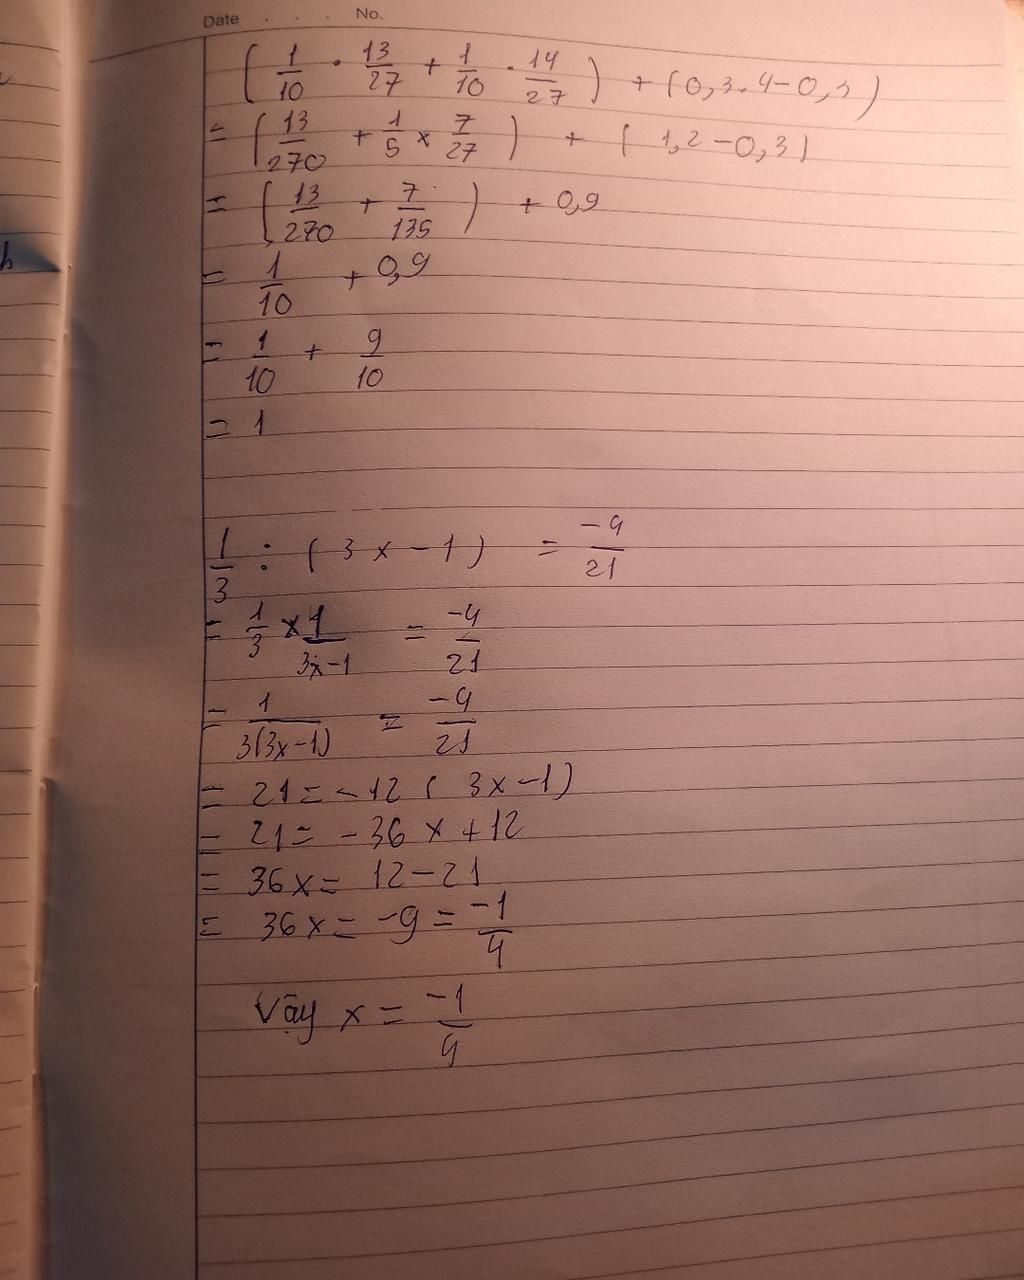 Date . . . No.
( 1/10 . 13/27 + 1/10 . 14/27 ) + (0,3.4-0,3)
= ( 13/270 + 1/5 x 7/27 ) + ( 1,2-0,3)
= ( 13/270 + 7/135 ) + 0,9
= 1/10 + 0,9
= 1/10 + 9/10
= 1
1/3 : ( 3x-1) = -4/21
= 1/3 x 1/3x-1 = -4/21
= 1/3(3x-1) = -4/21
= 21 = -12 ( 3x-1)
= 21 = -36x+12
= 36x = 12-21
= 36x = -9 = -1/4
Vậy x = -1/4